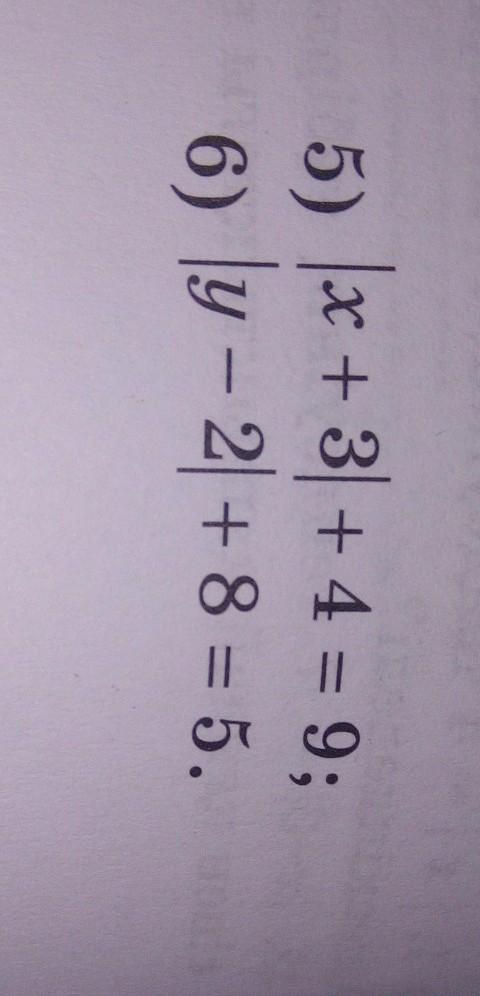 5) |x + 3| + 4 = 9;
6) |y − 2| + 8 = 5.